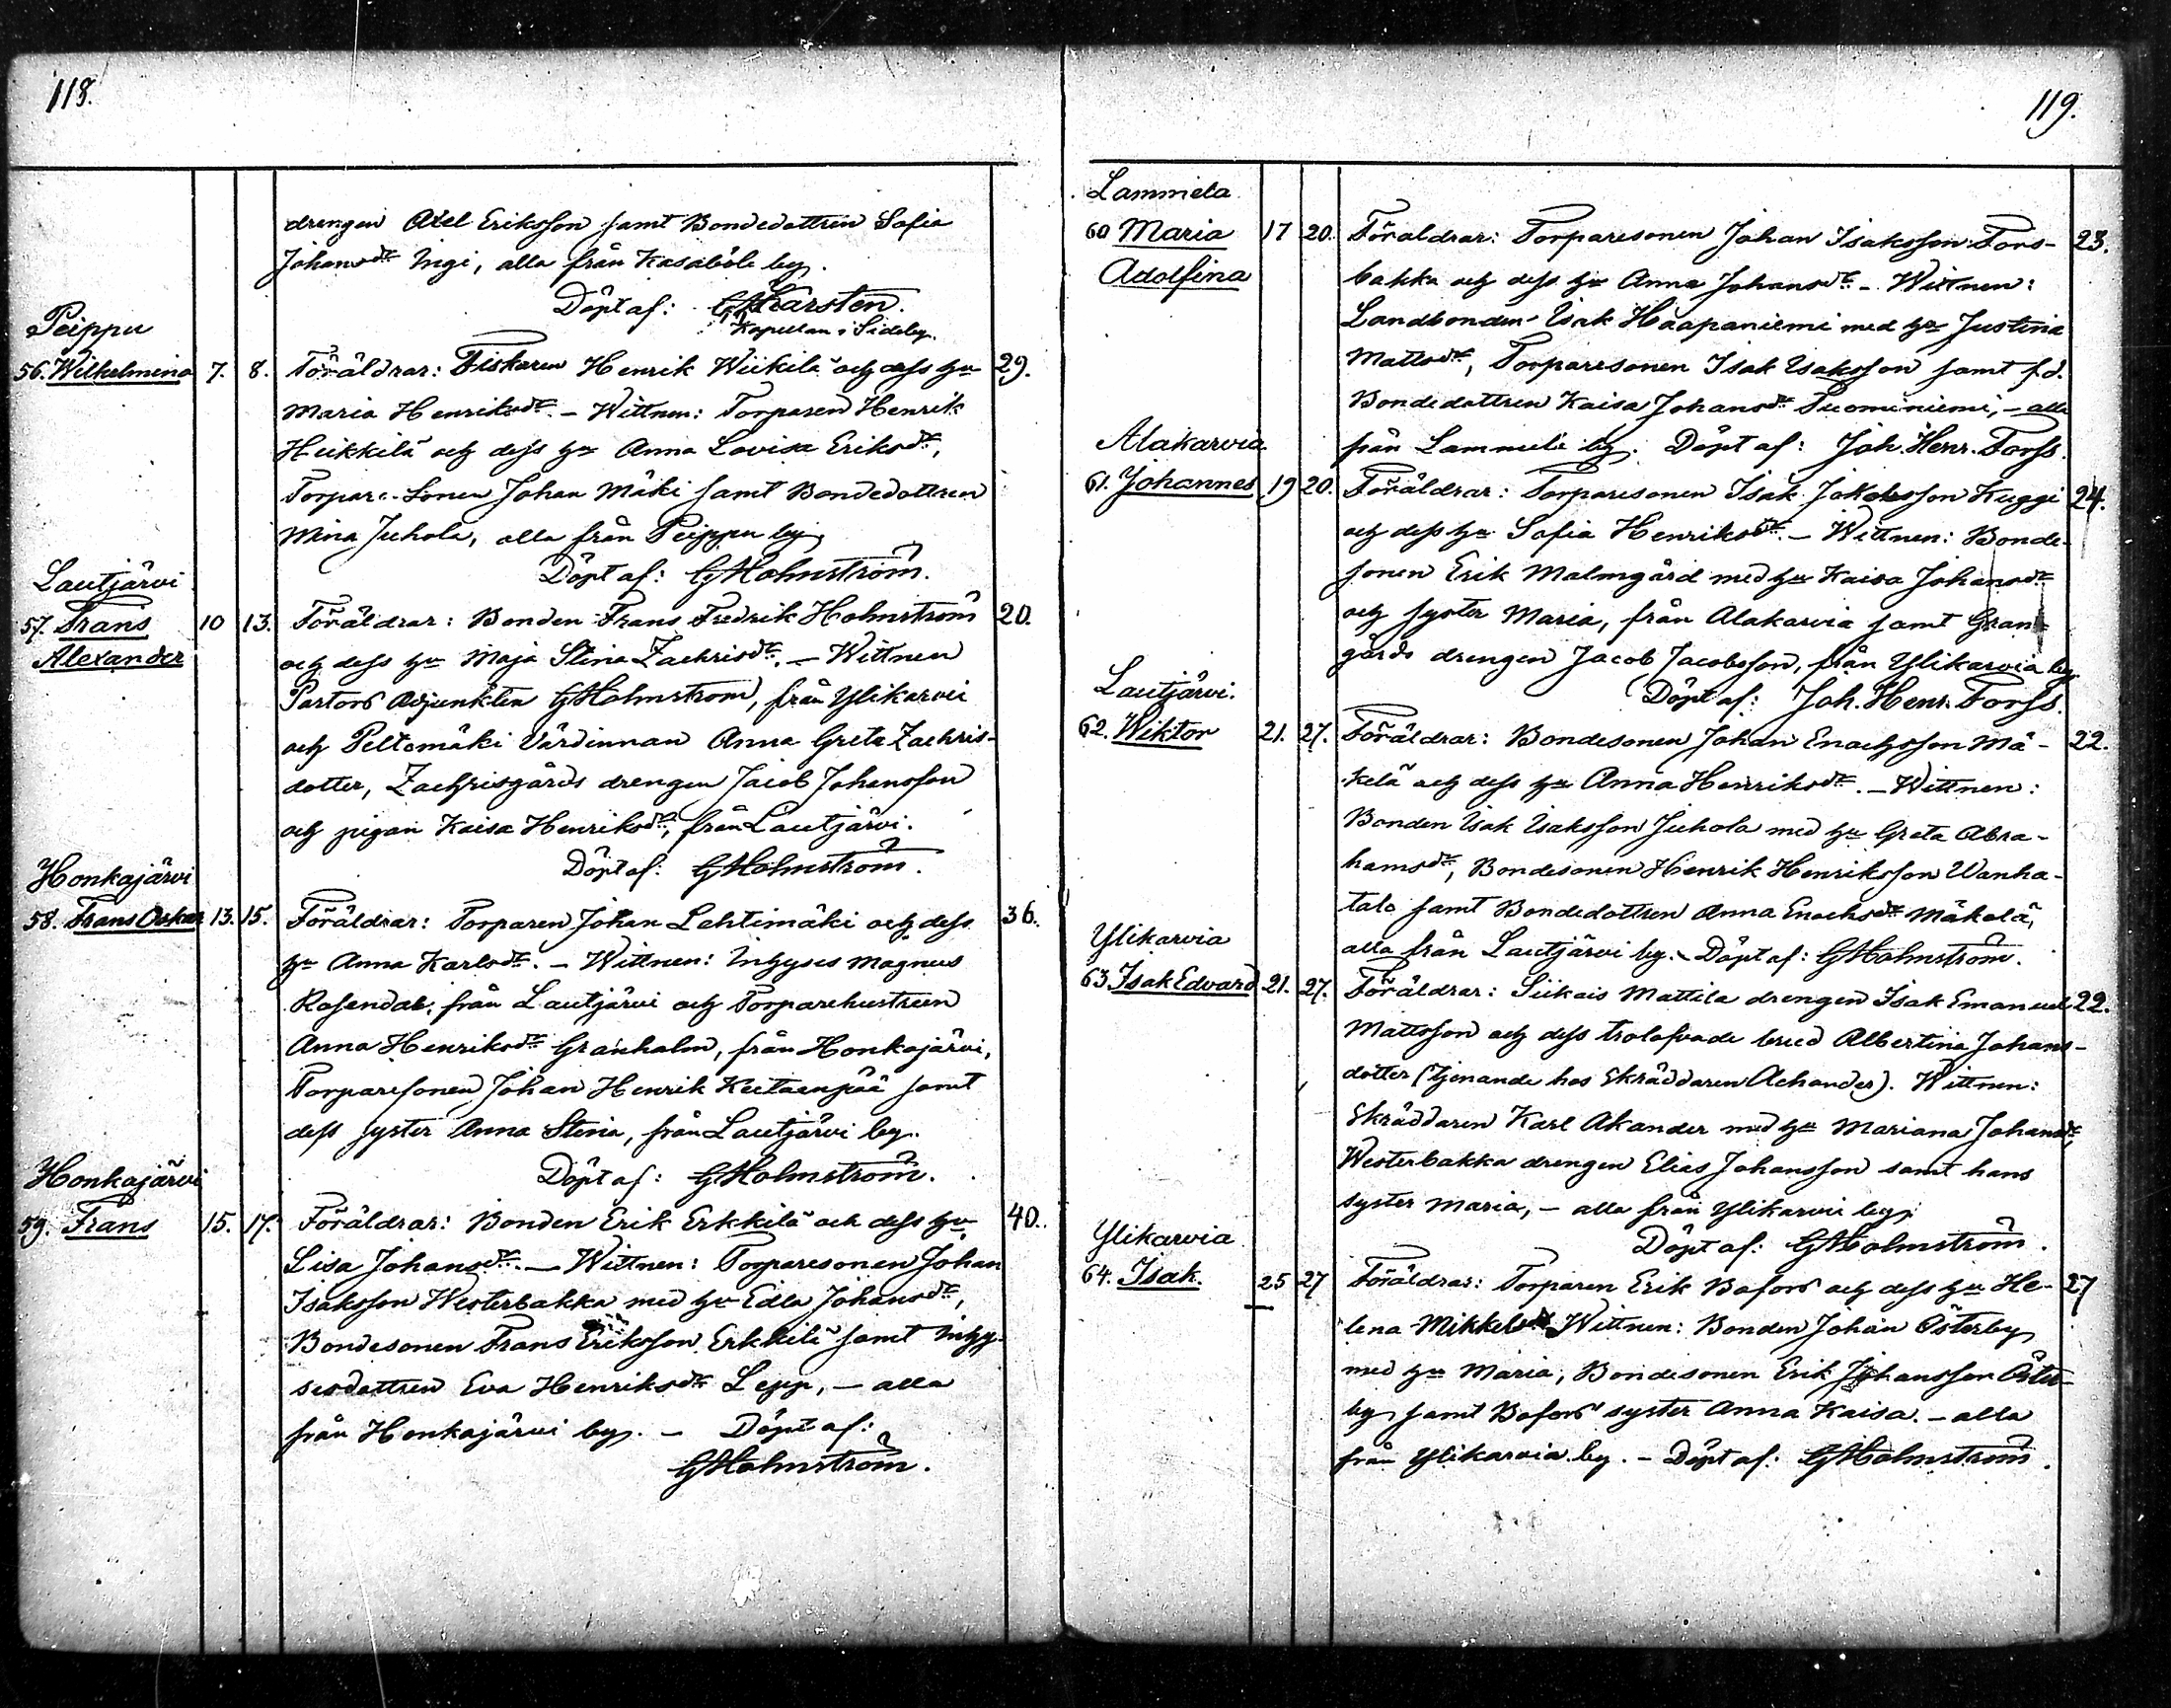 118.
drengen Axel Eriksson samt Bondedottren Sofia
Johansdr Ingi, alla från Kasaböle by.
Döpt af: GKarsten.
Kapellan i Sideby.
Peippu
56. Wilhelmina 7. 8. Föräldrar: Fiskaren Henrik Wiikilä och dess hu 29.
Maria Henriksdr. – Wittnen: Torparen Henrik
Heikkilä och dess hu Anna Lovisa Eriksdr,
Torpare-Sonen Johan Mäki samt Bondedottren
Mina Juhola, alla från Peippu by.
Döpt af: GHolmström.
Lautjärvi
57. Frans 10 13. Föräldrar: Bonden Frans Fredrik Holmström 20.
Alexander
och dess hu Maja Stina Zachrisdr. – Wittnen
Pastors Adjunkten GHolmström, från Ylikarvia
och Peltomäki Värdinnan Anna Greta Zachris-
dotter, Zachrisgårds drengen Jacob Johansson
och pigan Kaisa Henriksdr, från Lautjärvi.
Döpt af: GHolmström.
Honkajärvi
58. Frans Oskar 13. 15. Föräldrar: Torparen Johan Lahtimäki och dess 36.
hu Anna Karlsdr. – Wittnen: Inhyses Magnus
Rosendal, från Lautjärvi och Torparehustrun
Anna Henriksdr Granholm, från Honkajärvi,
Torparesonen Johan Henrik Keitaanpää samt
dess syster Anna Stina, från Lautjärvi by.
Döpt af: GHolmström.
Honkajärvi
59. Frans 15. 17. Föräldrar: Bonden Erik Erkkilä och dess hu 40.
Lisa Johansdr. – Wittnen: Torparesonen Johan
Isaksson Westerbakka med hu Edla Johansdr,
Bondesonen Frans Eriksson Erkkilä samt Inhy-
sesdottren Eva Henriksdr Lepp, – alla
från Honkajärvi by. – Döpt af:
GHolmström.
119.
Lammela
60 Maria 17 20. Föräldrar: Torparesonen Johan Isaksson Tors- 23.
Adolfina
bakka och dess hu Anna Johansdr – Wittnen:
Landbonden Isak Haapaniemi med hu Justina
Mattsdr, Torparesonen Isak Isaksson samt f.d.
Bondedottren Kaisa Johansdr Tuominiemi, – alla
från Lammela by. Döpt af: Joh. Henr. Forss.
Alakarvia
61. Johannes 19 20. Föräldrar: Torparesonen Isak Jakobsson Kuggi 24.
och dess hu Sofia Henriksdr. – Wittnen: Bonde-
sonen Erik Malmgård med hu Kaisa Johansdr
och syster Maria, från Alakarvia samt Gran-
gårds drengen Jacob Jacobsson, från Ylikarvia by.
Döpt af: Joh. Henr. Forss.
Lautjärvi.
62. Wiktor 21. 27. Föräldrar: Bondesonen Johan Enochsson Mä- 22.
kelä och dess hu Anna Henriksdr. – Wittnen:
Bonden Isak Isaksson Juhola med hu Greta Abra-
hamsdr, Bondesonen Henrik Henriksson Wanha-
talo samt Bondedottren Anna Enochsdr Mäkelä,
alla från Lautjärvi by. – Döpt af: GHolmström.
Ylikarvia
63. Isak Edvard 21. 27. Föräldrar: Siikais Mattila drengen Isak Emanuel 22.
Mattsson och dess trolofvade brud Albertina Johans-
dotter (tjenande hos Skräddaren Achander). Wittnen:
Skräddaren Karl Akander med hu Mariana Johansdr,
Westerbakka drengen Elias Johansson samt hans
syster Maria, – alla från Ylikarvia by.
Döpt af: GHolmström.
Ylikarvia
64. Isak. 25 27 Föräldrar: Torparen Erik Bofors och dess hu He- 27
lena Mikkelsdr Wittnen: Bonden Johan Österby
med hu Maria, Bondesonen Erik Johansson Öster-
by samt Bofors syster Anna Kaisa. – alla
från Ylikarvia by. – Döpt af: GHolmström.